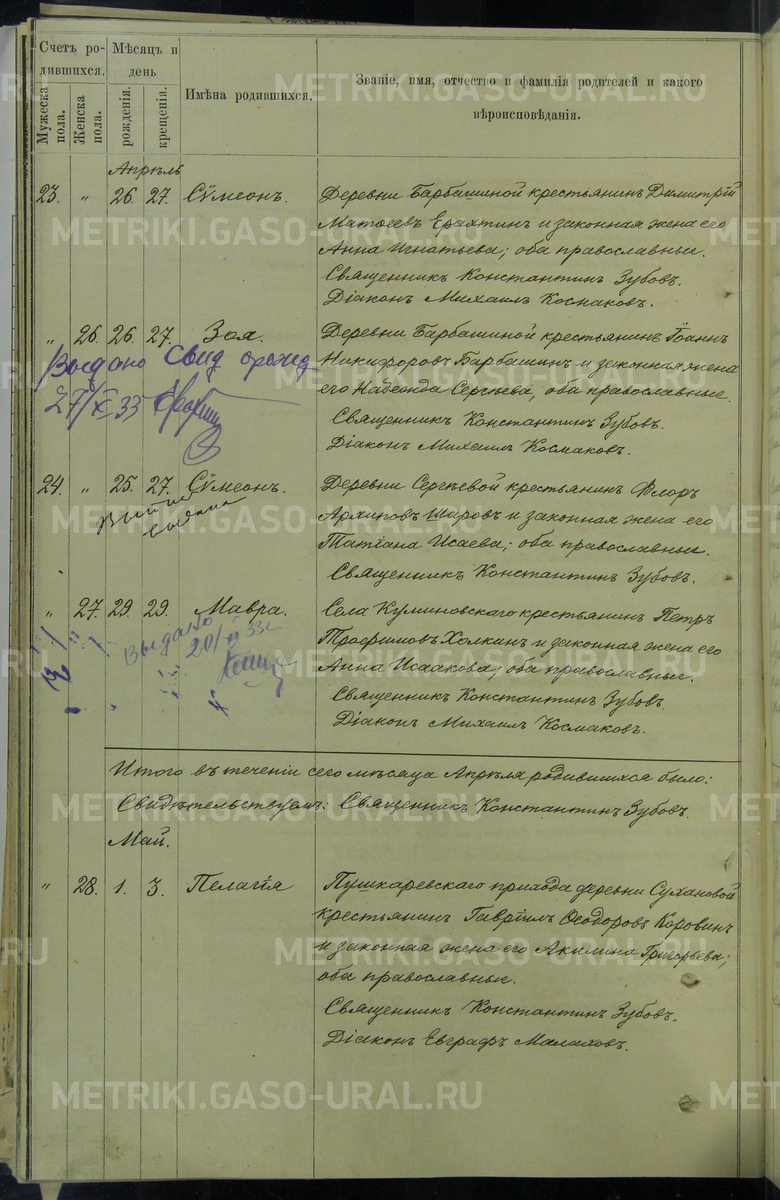 Счетъ ро-
дившихся.
Мѣсяцъ и
день
Мужеска
пола.
Женска
пола.
рожденія.
крещенія.
Имѣна родившихся.
Званіе, имя, отчество и фамилія родителей и какого
вѣроисповѣданія.
Апрѣль
23. " 26. 27. Сѵмеонъ. Деревни Барбашиной крестьянинъ Димитрій
Матѳеевъ Ерахтинъ и законная жена его
Анна Игнатьева; оба православные.
Священникъ Константинъ Зубовъ.
Діаконъ Михаилъ Космаковъ.
" 26. 26. 27. Зоя. Деревни Барбашиной крестьянинъ Іоаннъ
Никифоровъ Барбашинъ и законная жена
его Надежда Сергѣева, оба православные.
Священникъ Константинъ Зубовъ.
Діаконъ Михаилъ Космаковъ.
Выдано Свид орожд
27/X 33
24. " 25. 27. Сѵмеонъ. Деревни Сергѣевой крестьянинъ Флоръ
Архиповъ Шаровъ и законная жена его
Татіана Исаева; оба православные.
Священникъ Константинъ Зубовъ.
" 27. 29. 29. Мавра. Села Куминовскаго крестьянинъ Петръ
Трофимовъ Холкинъ и законная жена его
Анна Исаакова; оба православные.
Священникъ Константинъ Зубовъ.
Діаконъ Михаилъ Космаковъ.
Выдано
Итого въ теченіи сего мѣсяца Апрѣля родившихся было:
Свидѣтельствуемъ: Священникъ Константинъ Зубовъ.
Май.
" 28. 1. 3. Пелагія Пушкаревскаго прихода деревни Сухановой
крестьянинъ Гавріилъ Ѳеодоровъ Коровинъ
и законная жена его Акилина Григорьева;
оба православные.
Священникъ Константинъ Зубовъ.
Діаконъ Евграфъ Малаховъ.
METRIKI.GASO-URAL.RU